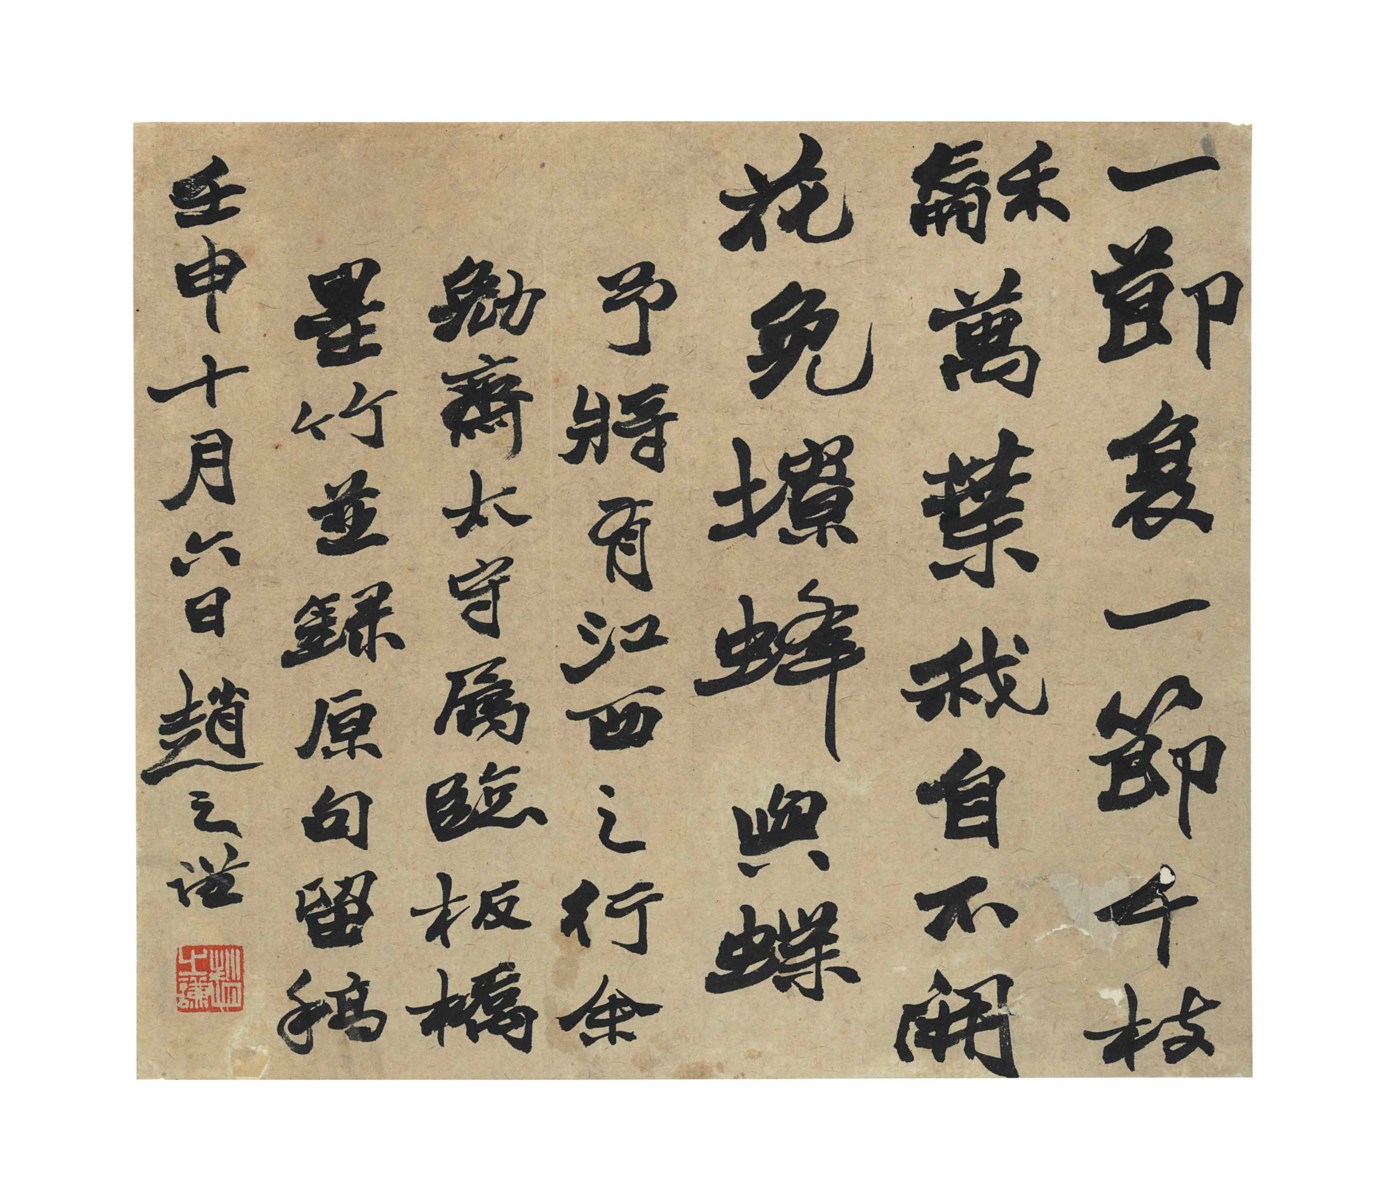 一節复一節千枝
龢萬葉我自不開
花免撩蜂與蝶
予將有江西之行余
勉齋太守属臨板橋
墨竹並録原句留稿
壬申十月六日趙之谦
趙之謙